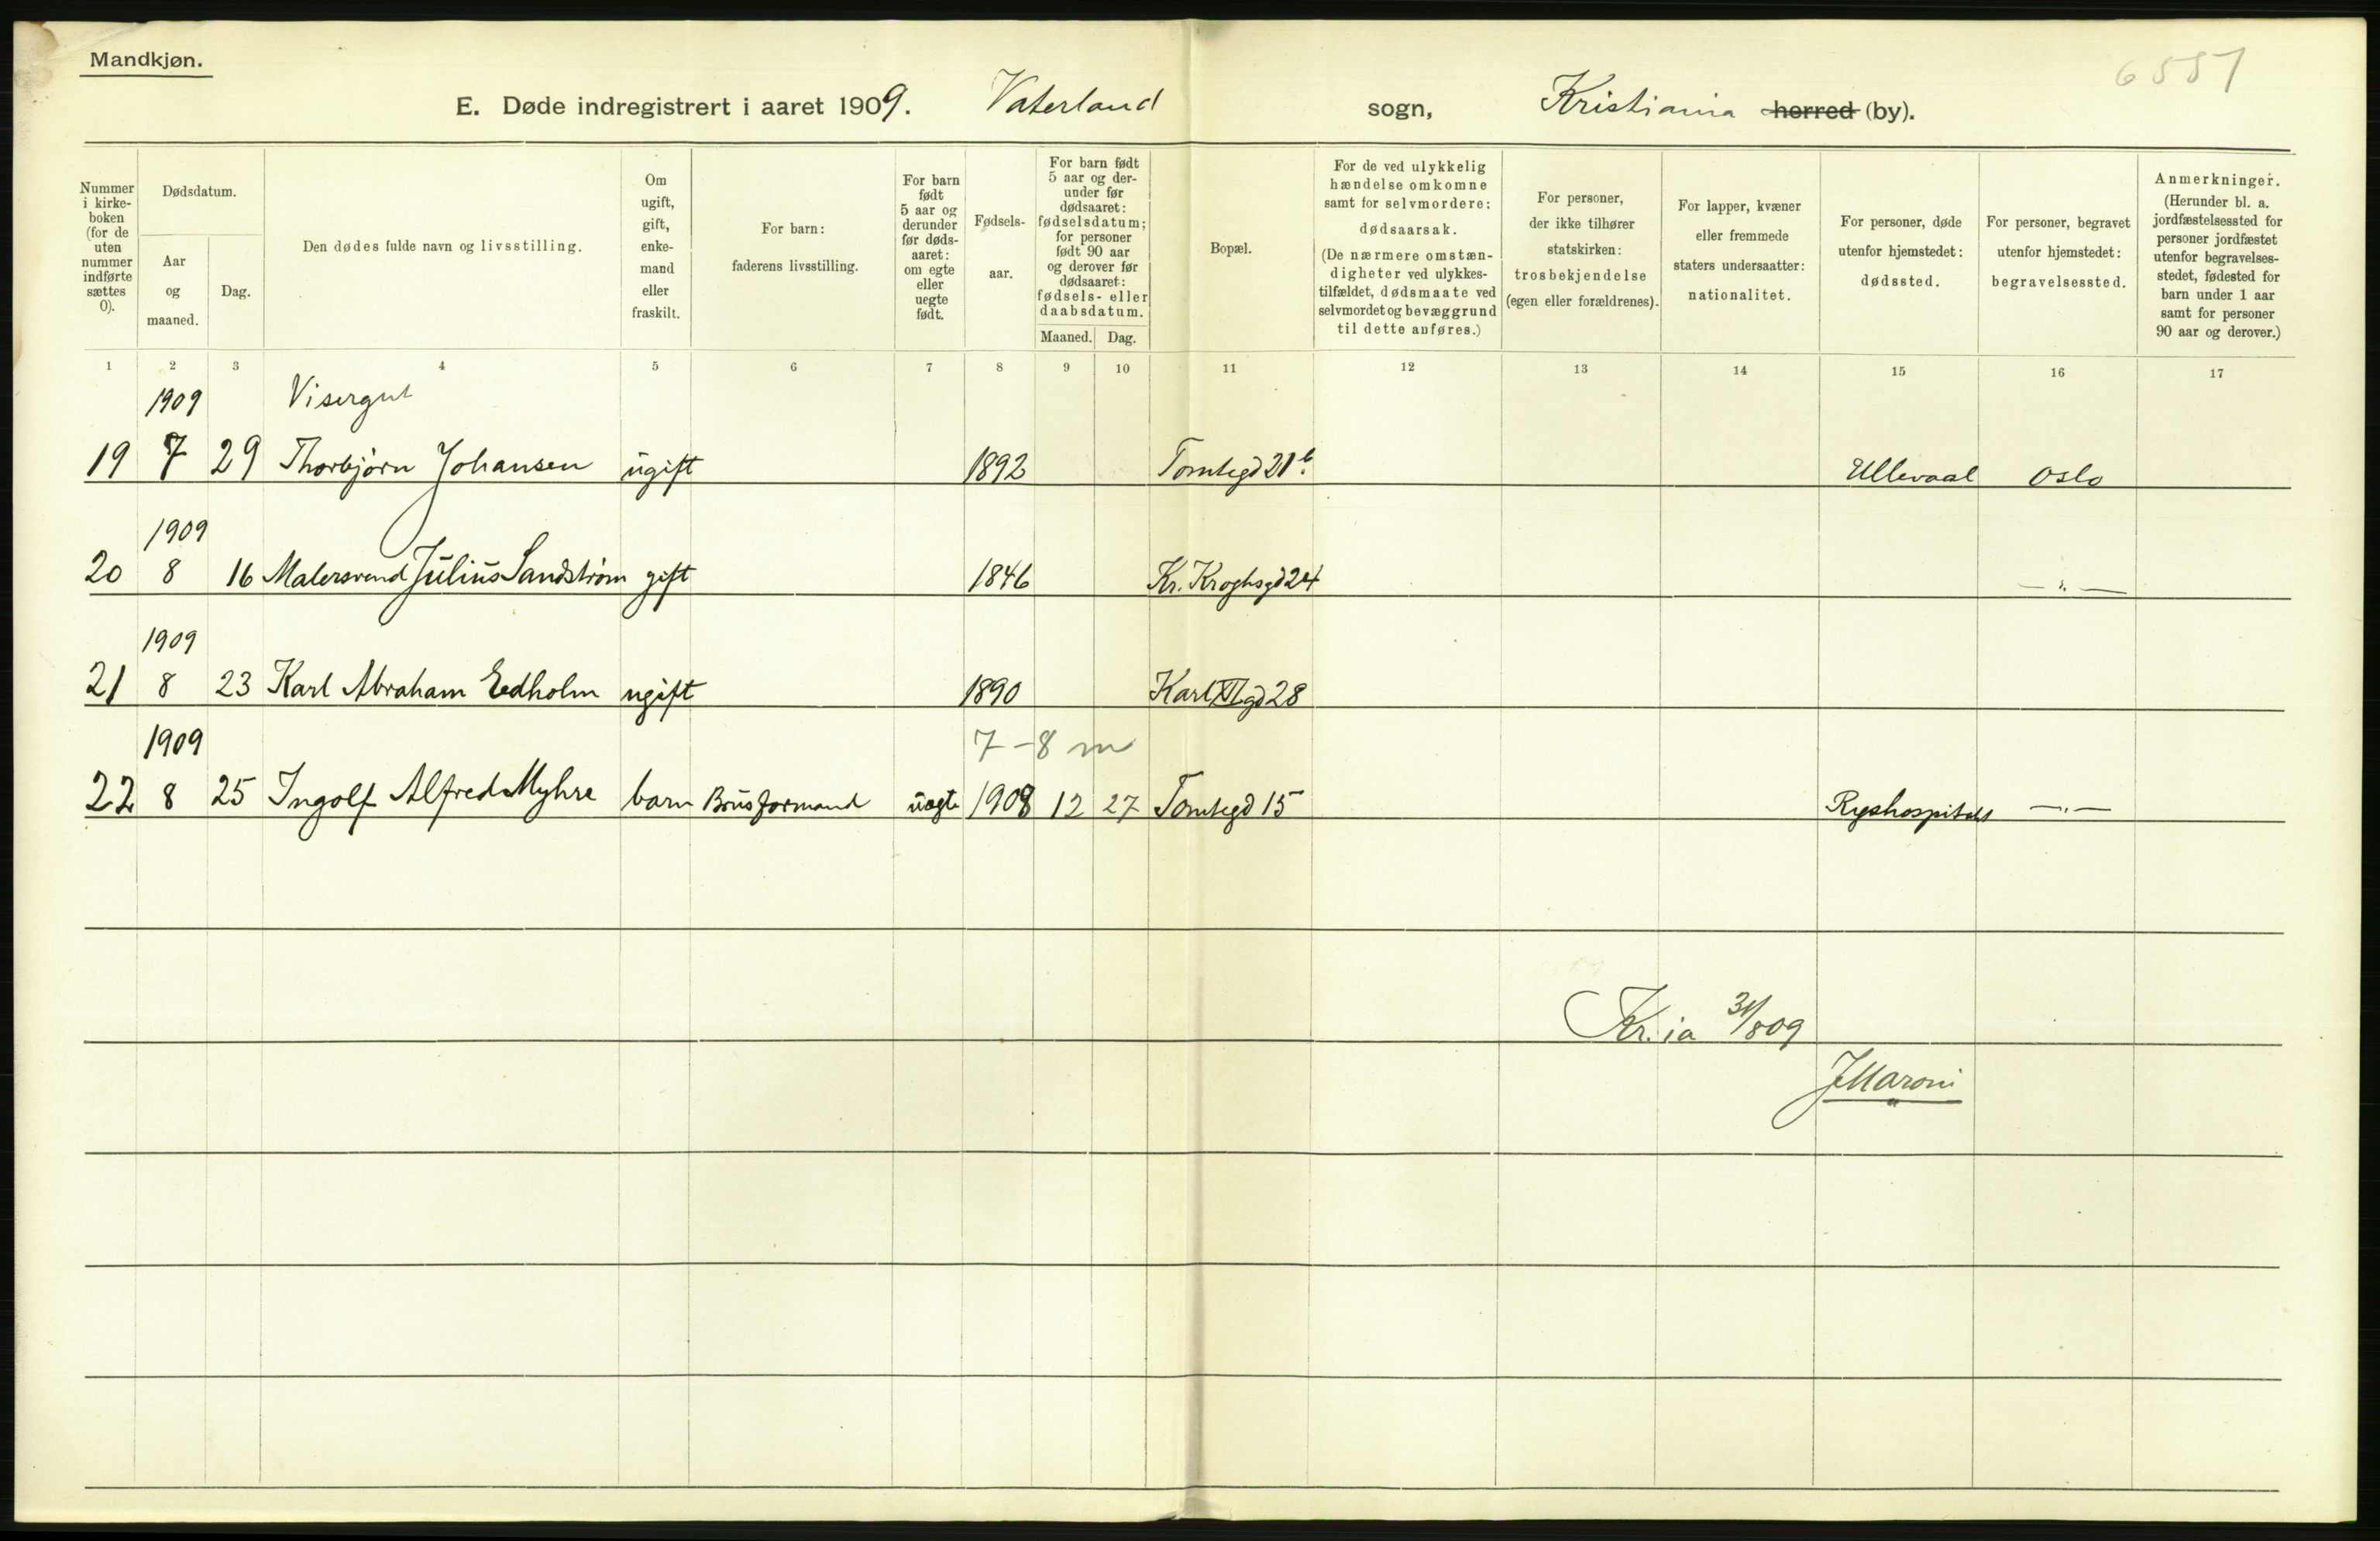 Mandkjøn.
6551
E. Døde indregistrert i aaret 1909. Vaterland sogn, Kristiania herred (by).
Nummer i kirke-boken (for de uten nummer indførte sættes 0).
Dødsdatum.
Aar og maaned.
Dag.
Den dødes fulde navn og livsstilling.
Om ugift, gift, enke-mand eller fraskilt.
For barn: faderens livsstilling.
For barn født 5 aar og derunder før døds-aaret: om egte eller uegte født.
Fødsels-aar.
For barn født 5 aar og der-under før dødsaaret: fødselsdatum; for personer født 90 aar og derover før dødsaaret: fødsels- eller daabsdatum.
Maaned. Dag.
Bopæl.
For de ved ulykkelig hændelse omkomne samt for selvmordere: dødsaarsak. (De nærmere omstæn-digheter ved ulykkes-tilfældet, dødsmaate ved selvmordet og bevæggrund til dette anføres.)
For personer, der ikke tilhører statskirken: trosbekjendelse (egen eller forældrenes).
For lapper, kvæner eller fremmede staters undersaatter: nationalitet.
For personer, døde utenfor hjemstedet: dødssted.
For personer, begravet utenfor hjemstedet: begravelsessted.
Anmerkninger. (Herunder bl. a. jordfæstelsessted for personer jordfæstet utenfor begravelses-stedet, fødested for barn under 1 aar samt for personer 90 aar og derover.)
1 2 3 4 5 6 7 8 9 10 11 12 13 14 15 16 17
1909 Visergut
19 7 29 Thorbjørn Johansen ugift 1892 Tomtegd 21b. Ullevaal Oslo
1909
20 8 16 Malersvend Julius Sandstrøm gift 1846 Kr. Kroghsgd 24 — " —
1909
21 8 23 Karl Abraham Eedholm ugift 1890 Karl XII gd 28
1909 7 - 8 m
22 8 25 Ingolf Alfred Myhre barn Brusformand uegte 1908 12 27 Tomtegd 15 Rigshospitalet — " —
Kr.ia 31/8 09
J Maroni